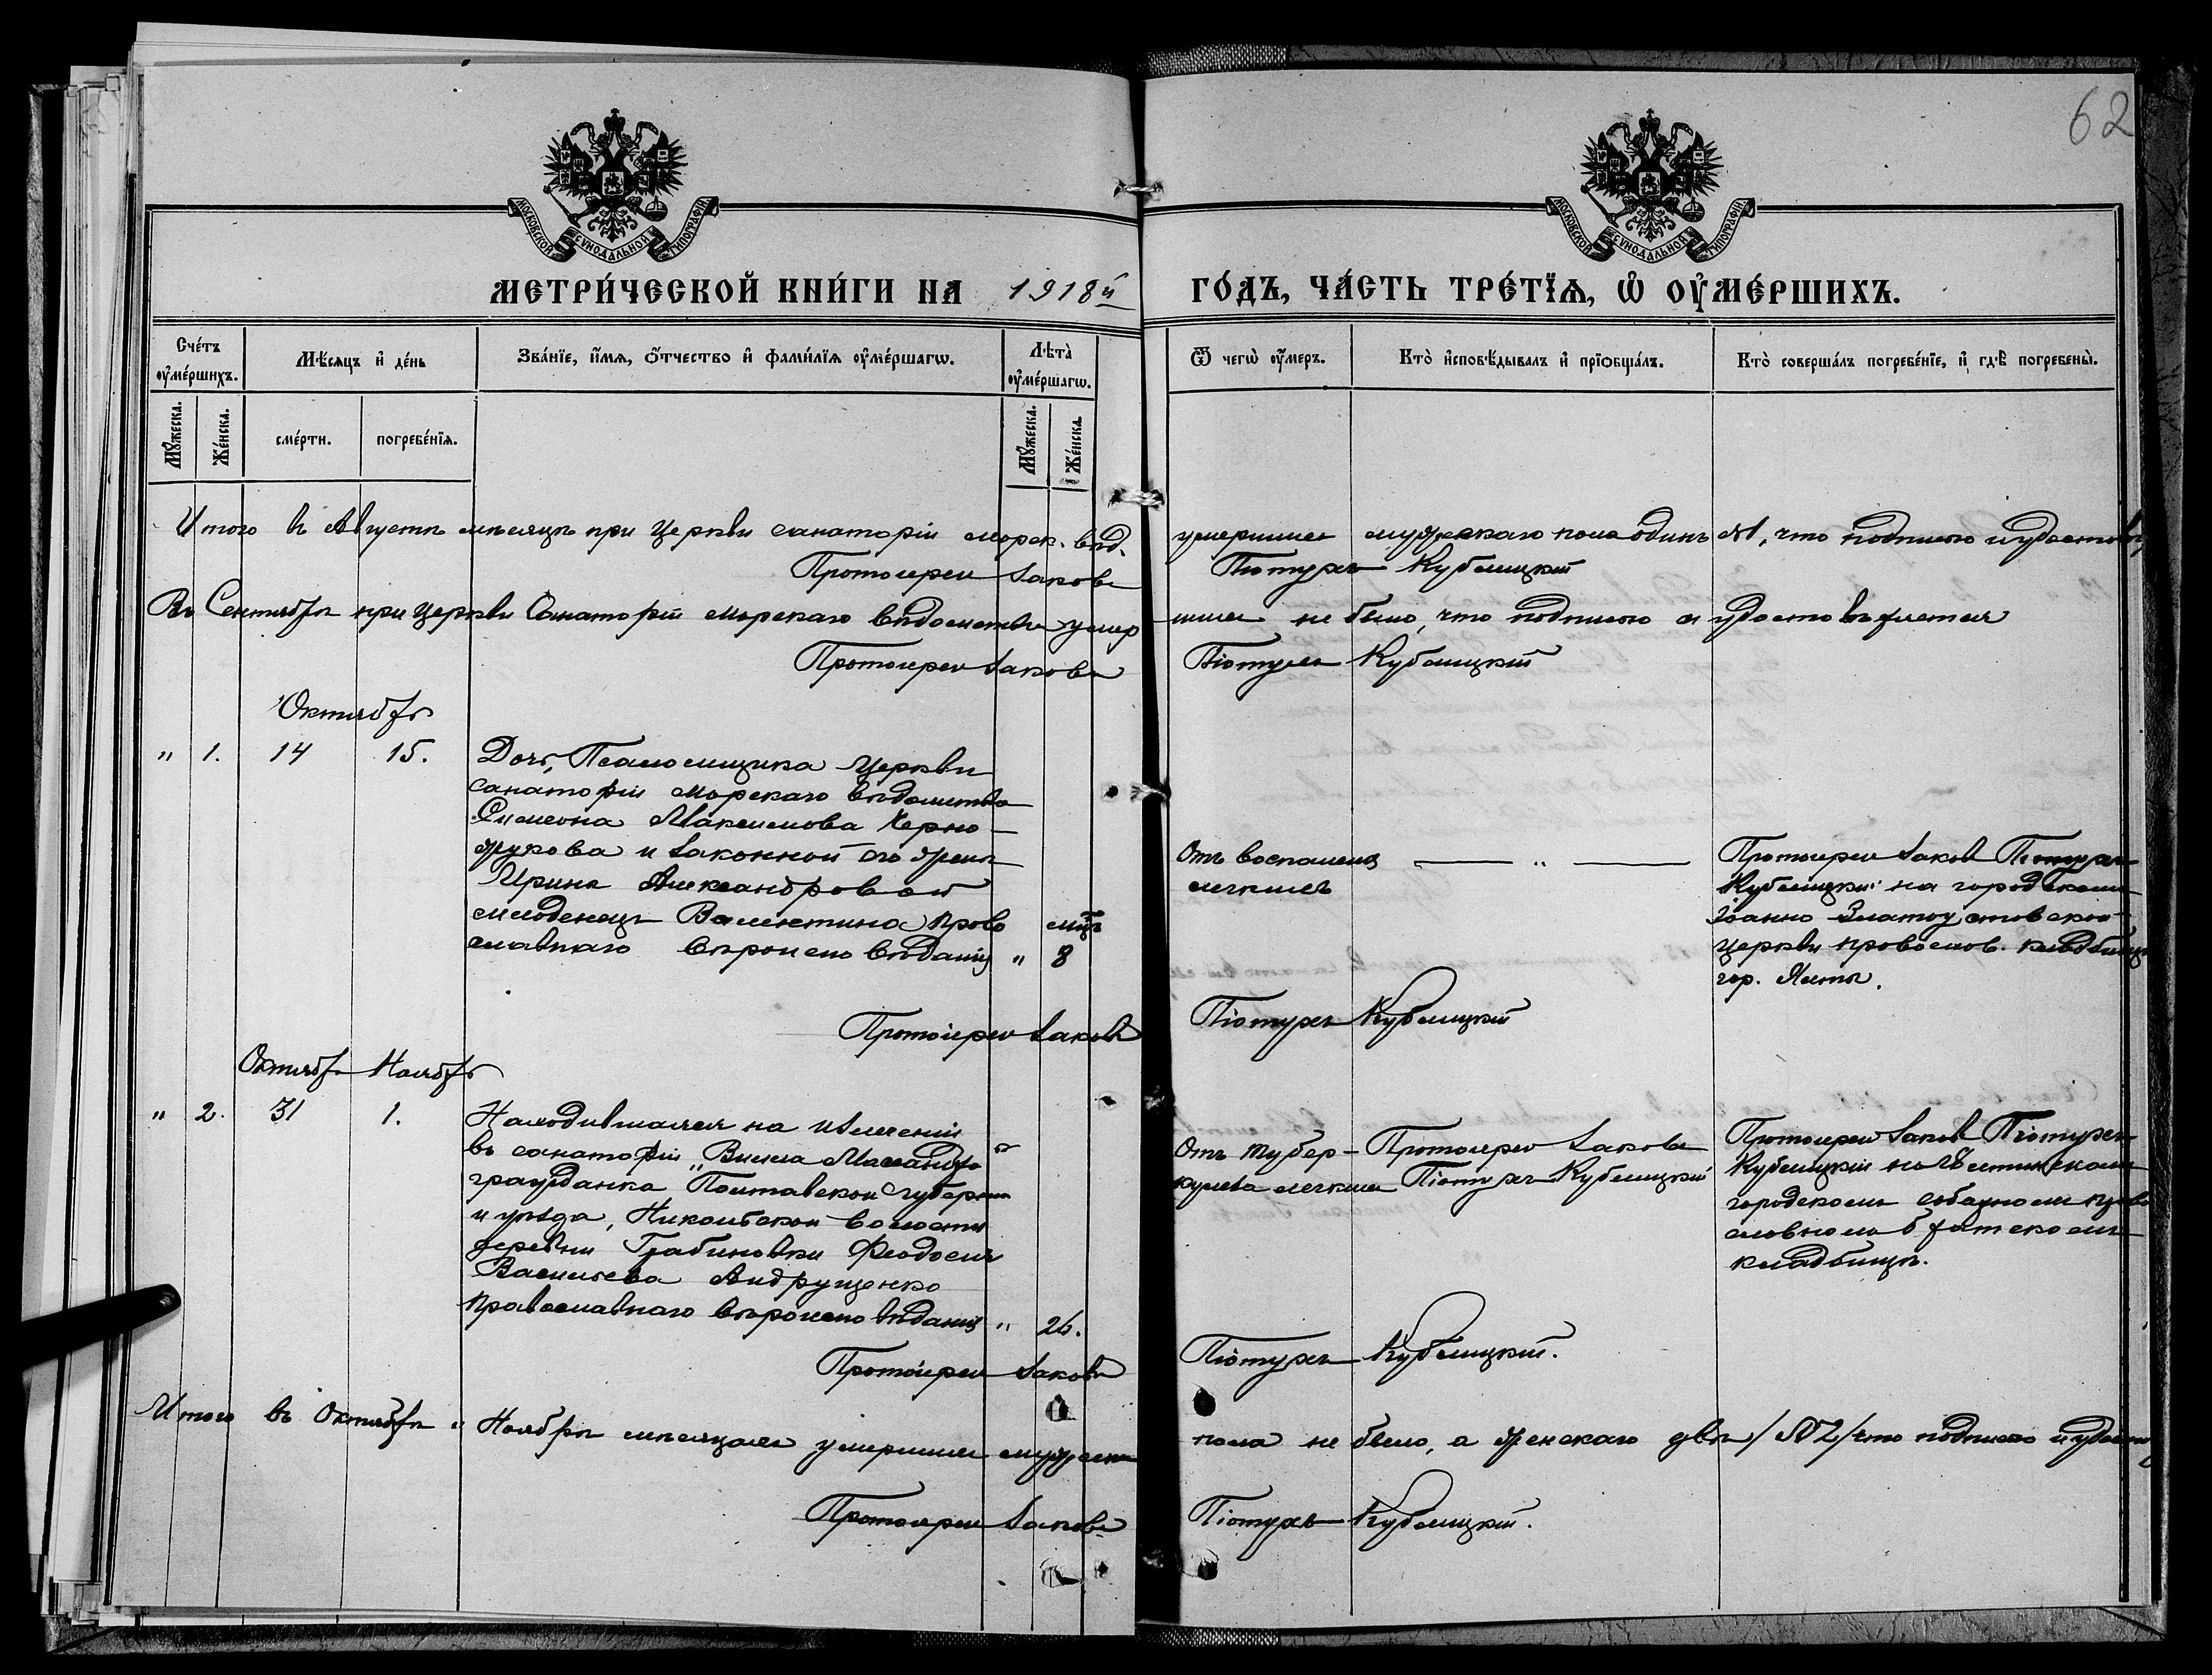 62
МОСКОВСКОЙ СѴНОДАЛЬНОЙ ТИПОГРАФІИ
МОСКОВСКОЙ СѴНОДАЛЬНОЙ ТИПОГРАФІИ
МЕТРИ́ЧЕСКОЙ КНИ́ГИ НА 1918й ГО́ДЪ, ЧА́СТЬ ТРЕ́ТЇѦ, Ѡ҆ ОУ҆МЕ́РШИХЪ.
Сче́тъ оу҆ме́ршихъ.
Мѣ́сяцъ и҆ де́нь
Зва́нїе, и҆́мѧ, ѻ҆́тчество и҆ фами́лїѧ оу҆ме́ршагѡ.
Лѣ́та оу҆ме́ршагѡ.
Ѿ чегѡ̀ оу҆́меръ.
Кто̀ и҆сповѣ́дывалъ и҆ прїѡбща́лъ.
Кто̀ соверша́лъ погребе́нїе, и҆ гдѣ̀ погребены̀.
Мꙋ́жеска. Же́нска. сме́рти. погребе́нїѧ. Мꙋ́жеска. Же́нска.
Итого въ Августѣ мѣсяцѣ при Церкви санаторіи морск. вѣд. умершихъ мужескаго пола одинъ №1, что подписью и удостовѣр
Протоіерей Іаковъ Піотухъ Кублицкій
Въ Сентябрѣ при Церкви Санаторіи Морскаго вѣдомства умер шихъ не было, что подписью и удостовѣряется
Протоіерей Іаковъ Піотухъ Кублицкій
Октябрь
" 1. 14 15. Дочь, Псаломщика Церкви
санаторіи морскаго вѣдомства
Симеона Максимова Черно-
жукова и законной его жены
Ирины Александровой
младенецъ Валентина право мцъ
славнаго вѣроисповѣданія " 8
Отъ воспаленія
легкихъ
— " —
Протоіерей Іаковъ Піотухъ
Кублицкій на городскомъ
Іоанно Златоустовской
церкви правослов. кладбищѣ
гор. Ялты.
Протоіерей Іаковъ Піотухъ Кублицкій
Октябрь Ноябрь
" 2. 31 1. Находившаяся на излеченіи
въ санаторіи "Вилла Массандра"
гражданка Полтавской губерніи
и уѣзда, Никольской волости
деревни Грабиновки Феодосія
Васильева Андрущенко
православнаго вѣроисповѣданія " 26.
Отъ тубер-
кулеза легкихъ
Протоіерей Іаковъ
Піотухъ Кублицкій
Протоіерей Іаковъ Піотухъ
Кублицкій на Ялтинскомъ
городскомъ право
словномъ братскомъ
кладбищѣ.
Протоіерей Іаковъ Піотухъ Кублицкій.
Итого въ Октябрѣ " Ноябрѣ мѣсяцахъ умершихъ мужеска пола не было, а женскаго двѣ /№2/ что подписью и удостов
Протоіерей Іаковъ Піотухъ Кублицкій.